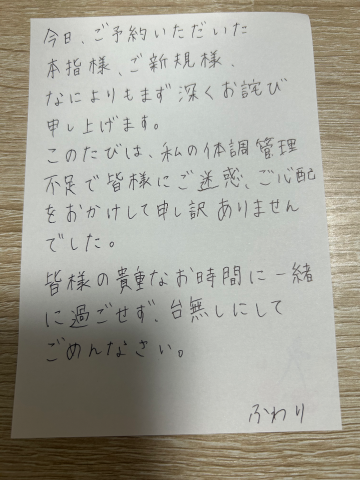 今日、ご予約いただいた
本指様、ご新規様、
なによりもまず深くお詫び
申し上げます。
このたびは、私の体調管理
不足で皆様にご迷惑、ご心配
をおかけして申し訳ありません
でした。
皆様の貴重なお時間に一緒
に過ごせず、台無しにして
ごめんなさい。
ふわり